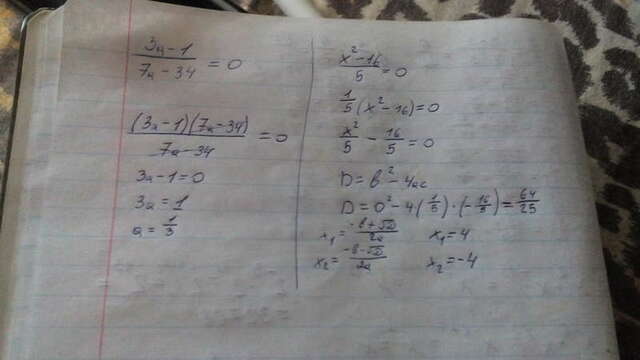 (3a-1)/(7a-34) = 0
((3a-1)(7a-34))/(7a-34) = 0
3a-1=0
3a=1
a=1/3
(x²-16)/5 = 0
1/5(x²-16)=0
x²/5 - 16/5 = 0
D=b²-4ac
D=0²-4(1/5)·(-16/5)=64/25
x₁=(-b+√D)/2a x₁=4
x₂=(-b-√D)/2a x₂=-4